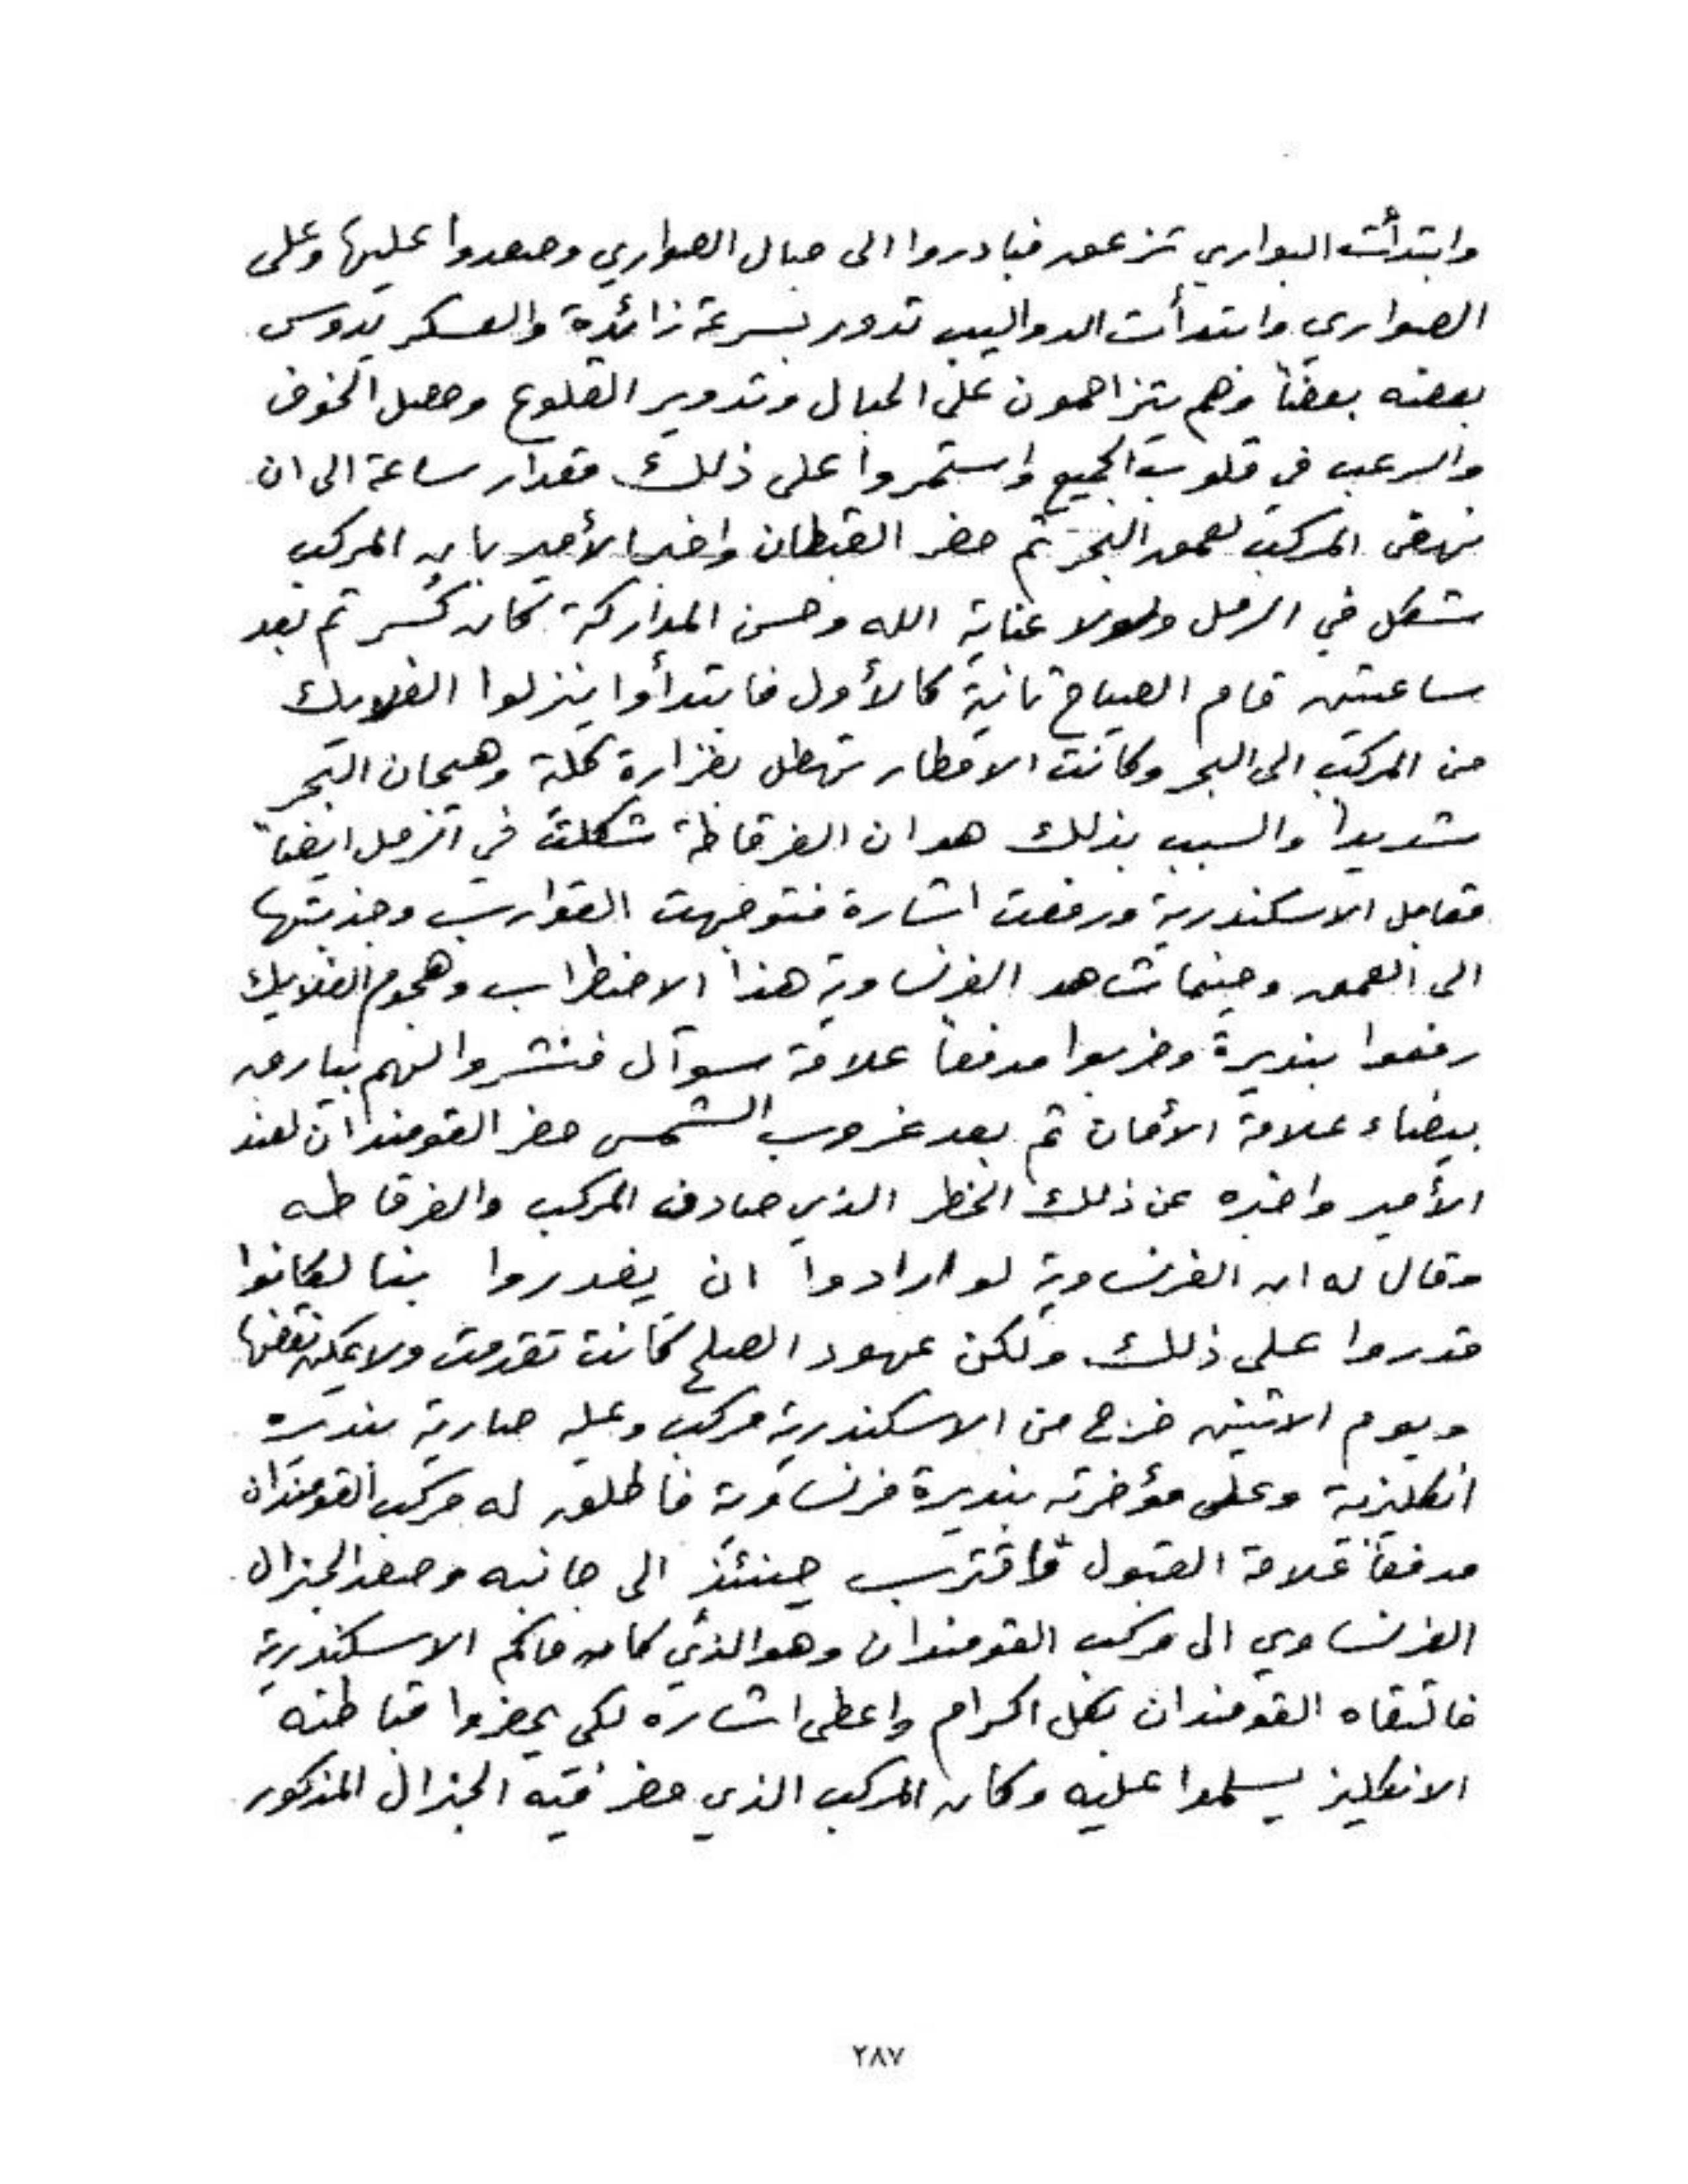 وابتدأت البواري تزعق فبادروا الى حبال الصواري وصعدوا عليها وعلى
الصواري وابتدأت الدواليب تدور بسرعة زائدة والعسكر يدوس
بعضه بعضاً وهم يتزاحمون على الحبال وتدوير القلوع وحصل الخوف
والرعب في قلوب الجميع واستمروا على ذلك مقدار ساعة الى ان
نهض المركب لعمق البحر ثم حضر القبطان واخبر الأمير بان المركب
شكل في الرمل ولولا عناية الله وحسن المداركة لكان كُسر ثم بعد
ساعتين قام الصياح ثانية كالأول فابتدأوا ينزلوا الفلايك
من المركب الى البحر وكانت الامطار تهطل بغزارة كلية وهيجان البحر
شديداً والسبب بذلك هو ان الفرقاطة شكلت في الرمل ايضاً
مقابل الاسكندرية ورفعت اشارة فتوجهت القوارب وجذبتها
الى العمق وحينما شاهد الفرنساوية هذا الاضطراب وهجوم الفلايك
رفعوا بنديرة وضربوا مدفعاً علامة سوآل فنشروا لهم بيارق
بيضاء علامة الأمان ثم بعد غروب الشمس حضر القومندان لعند
الأمير واخبره عن ذلك الخطر الذي صادف المركب والفرقاطه
وقال له ان الفرنساوية لو ارادوا ان يغدروا بنا لكانوا
قدروا على ذلك ولكن عهود الصلح كانت تقدمت ولا يمكن نقضها
ويوم الاثنين خرج من الاسكندرية مركب وعليه صارية بنديره
انكليزية وعلى مؤخرته بنديرة فرنساوية فاطلق له مركب القومندان
مدفعاً علامة القبول فاقترب حينئذٍ الى جانبه وصعد الجنرال
الفرنساوي الى مركب القومندان وهو الذي كان حاكم الاسكندرية
فالتقاه القومندان بكل اكرام واعطى اشاره لكي يحضروا قباطنه
الانكليز يسلموا عليه وكان المركب الذي حضر فيه الجنرال المذكور
٢٨٧